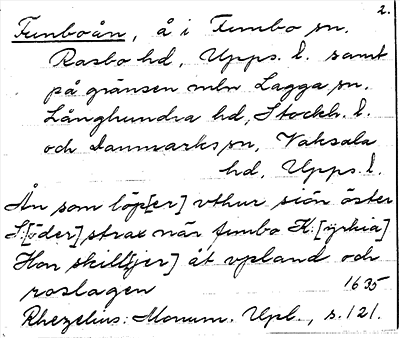 2.
Funboån, å i Funbo sn.
Rasbo hd, Upps. l. samt
på gränsen mln Lagga sn.
Långhundra hd, Stockh. l.
och Danmarks sn, Vaksala
hd, Upps. l.
Ån som löp[er] vthur siön öster
S:[öder] strax när funbo K:[yrkia]
Hon skill[jer] åt vpland och
roslagen 1635
Rhezelius: Monum. Upl., s. 121.